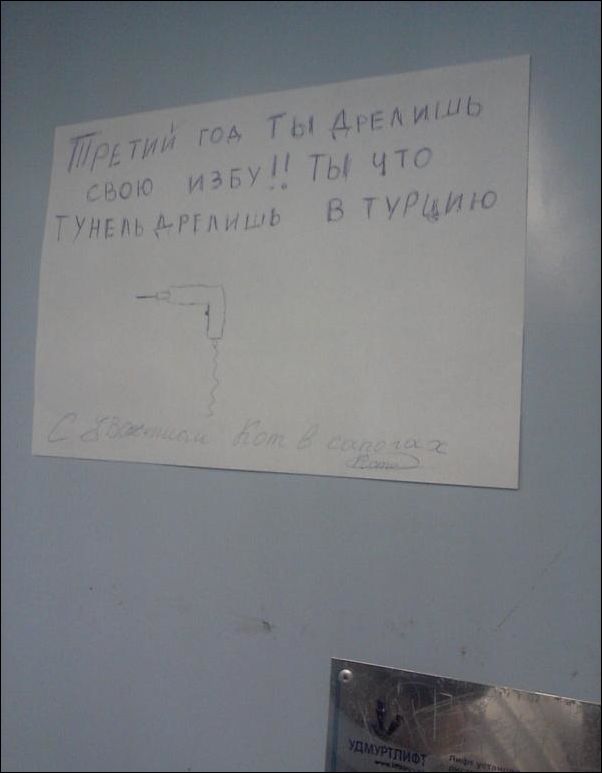 ТРЕТИЙ ГОД ТЫ ДРЕЛИШЬ
СВОЮ ИЗБУ!! ТЫ ЧТО
ТУНЕЛЬ ДРЕЛИШЬ В ТУРЦИЮ
С Уважением Кот в сапогах
УДМУРТЛИФТ